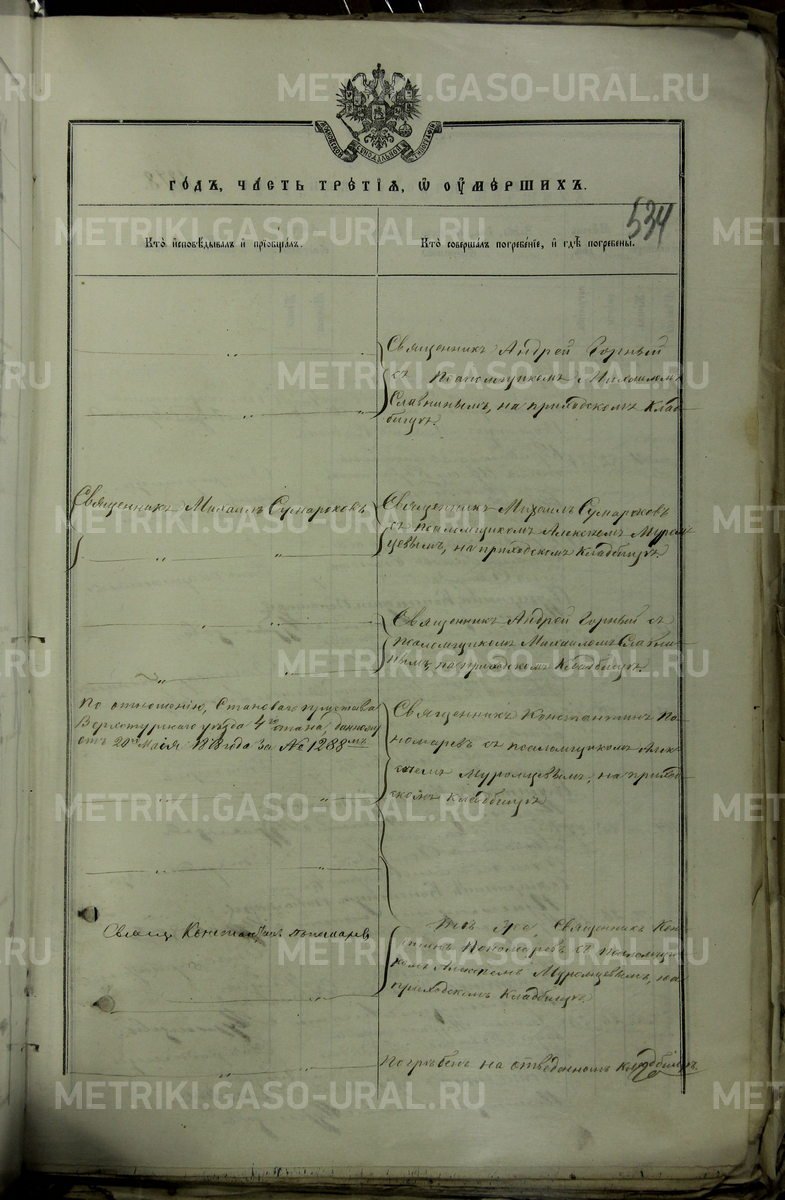 METRIKI.GASO-URAL.RU
СѴНОДАЛЬНОЙ
ТИПОГРАФІИ
534
го́дъ, ча́сть тре́тїѧ, ѡ оу҆ме́ршихъ.
Кто̀ и҆сповѣ́дывалъ и҆ прїѡбща́лъ.
Кто̀ соверша́лъ погребе́нїе, и҆ гдѣ̀ погребены̀.
Священникъ Андрей Горный
съ Псаломщикомъ Михаиломъ
Славнинымъ, на приходскомъ Клад-
бищѣ.
Священникъ Михаилъ Сумароковъ
Священникъ Михаилъ Сумароковъ
съ Псаломщикомъ Алексѣемъ Муром-
цевымъ, на приходскомъ Кладбищѣ.
Священникъ Андрей Горный съ
псаломщикомъ Михаиломъ Славни-
нымъ, на приходскомъ Кладбищѣ.
По отношенію, Становаго пристава
Верхотурскаго уѣзда 4го стана, данному
отъ Маія года за № 1288мъ
Священникъ Константинъ По-
номаревъ съ псаломщикомъ Алек-
сѣемъ Муромцевымъ, на приход-
скомъ Кладбищѣ
Свящ Константинъ Пономаревъ
Тотъ же Священникъ Кон-
Пономаревъ съ Псаломщи-
комъ Алексѣемъ Муромцевымъ, на
приходскомъ Кладбищѣ
Погребенъ на отведенномъ кладбищѣ.